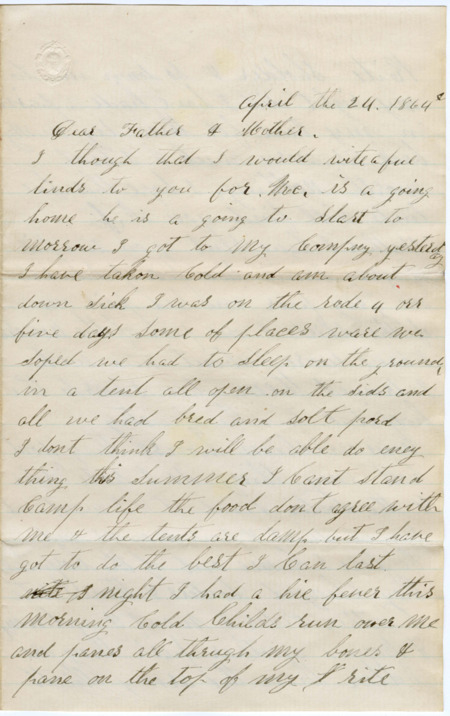 April the 24. 1864
Dear Father & Mother.
I though that I would rite a fue
linds to you for. is a going
home he is a going to start to
morrow I got to my Compny yesterday
I have taken Cold and am about
down sick I was on the rode 4 orr
five days some of places ware we
soped we had to sleep on the ground,
in a tent all open on the sids and
all we had bred and solt pord
I dont think I will be able do eney
thing this Summer I Cant stand
Camp life the food dont agree with
me & the tents are damp but I have
got to do the best I Can last
night I had a hie fever this
morning Cold Childs run over me
and panes all through my bones &
pane on the top of my rite